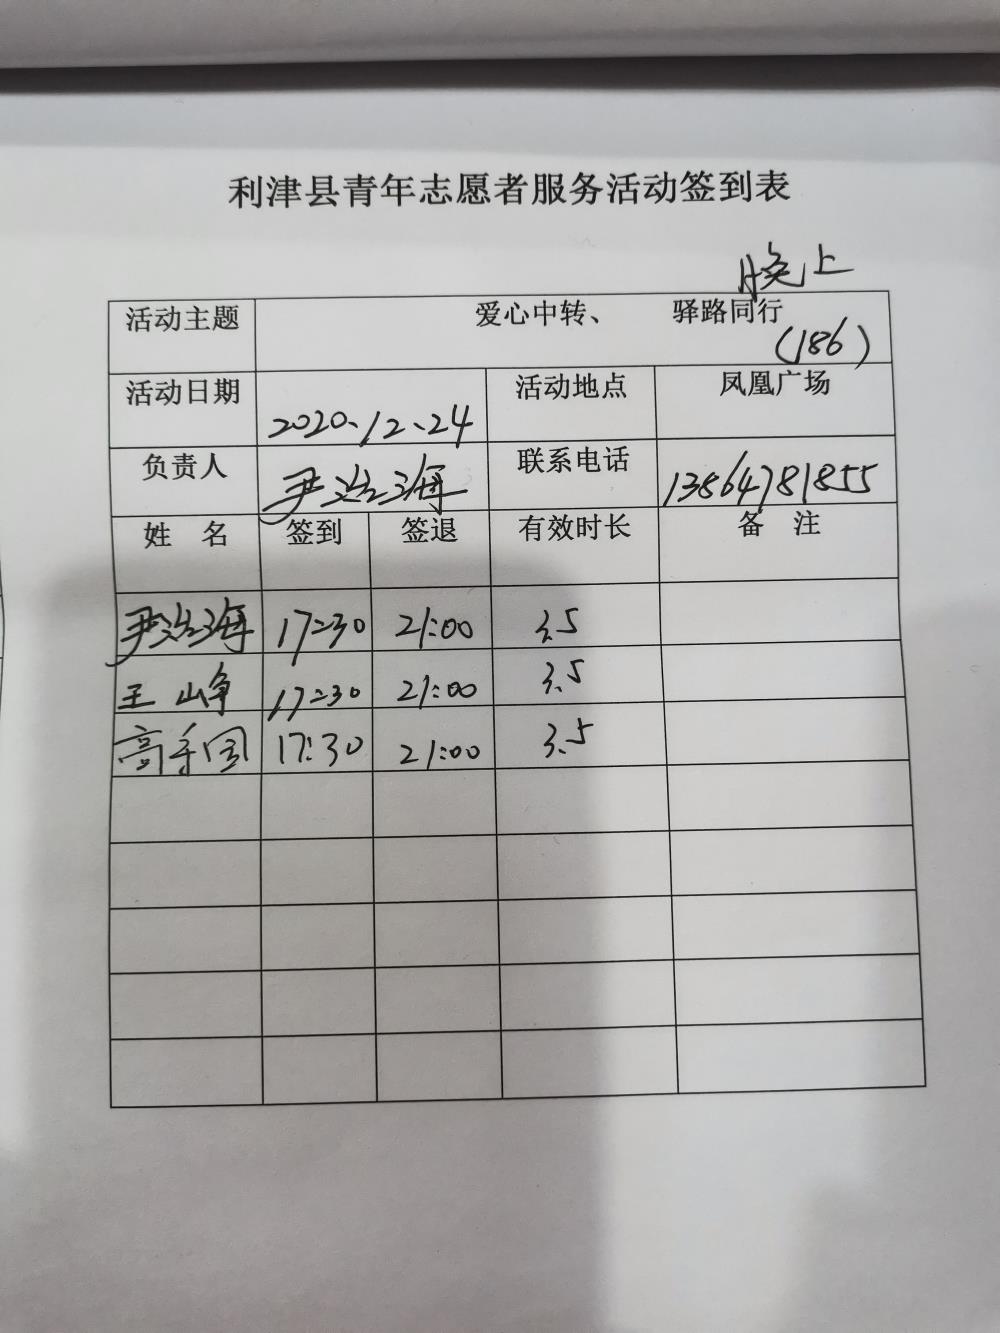 利津县青年志愿者服务活动签到表
晚上
活动主题 爱心中转、 驿路同行
(186)
活动日期 2020.12.24 活动地点 凤凰广场
负责人 尹洪海 联系电话 13864781855
姓 名 签到 签退 有效时长 备 注
尹洪海 17:30 21:00 3.5
王 峥 17:30 21:00 3.5
高 国 17:30 21:00 3.5